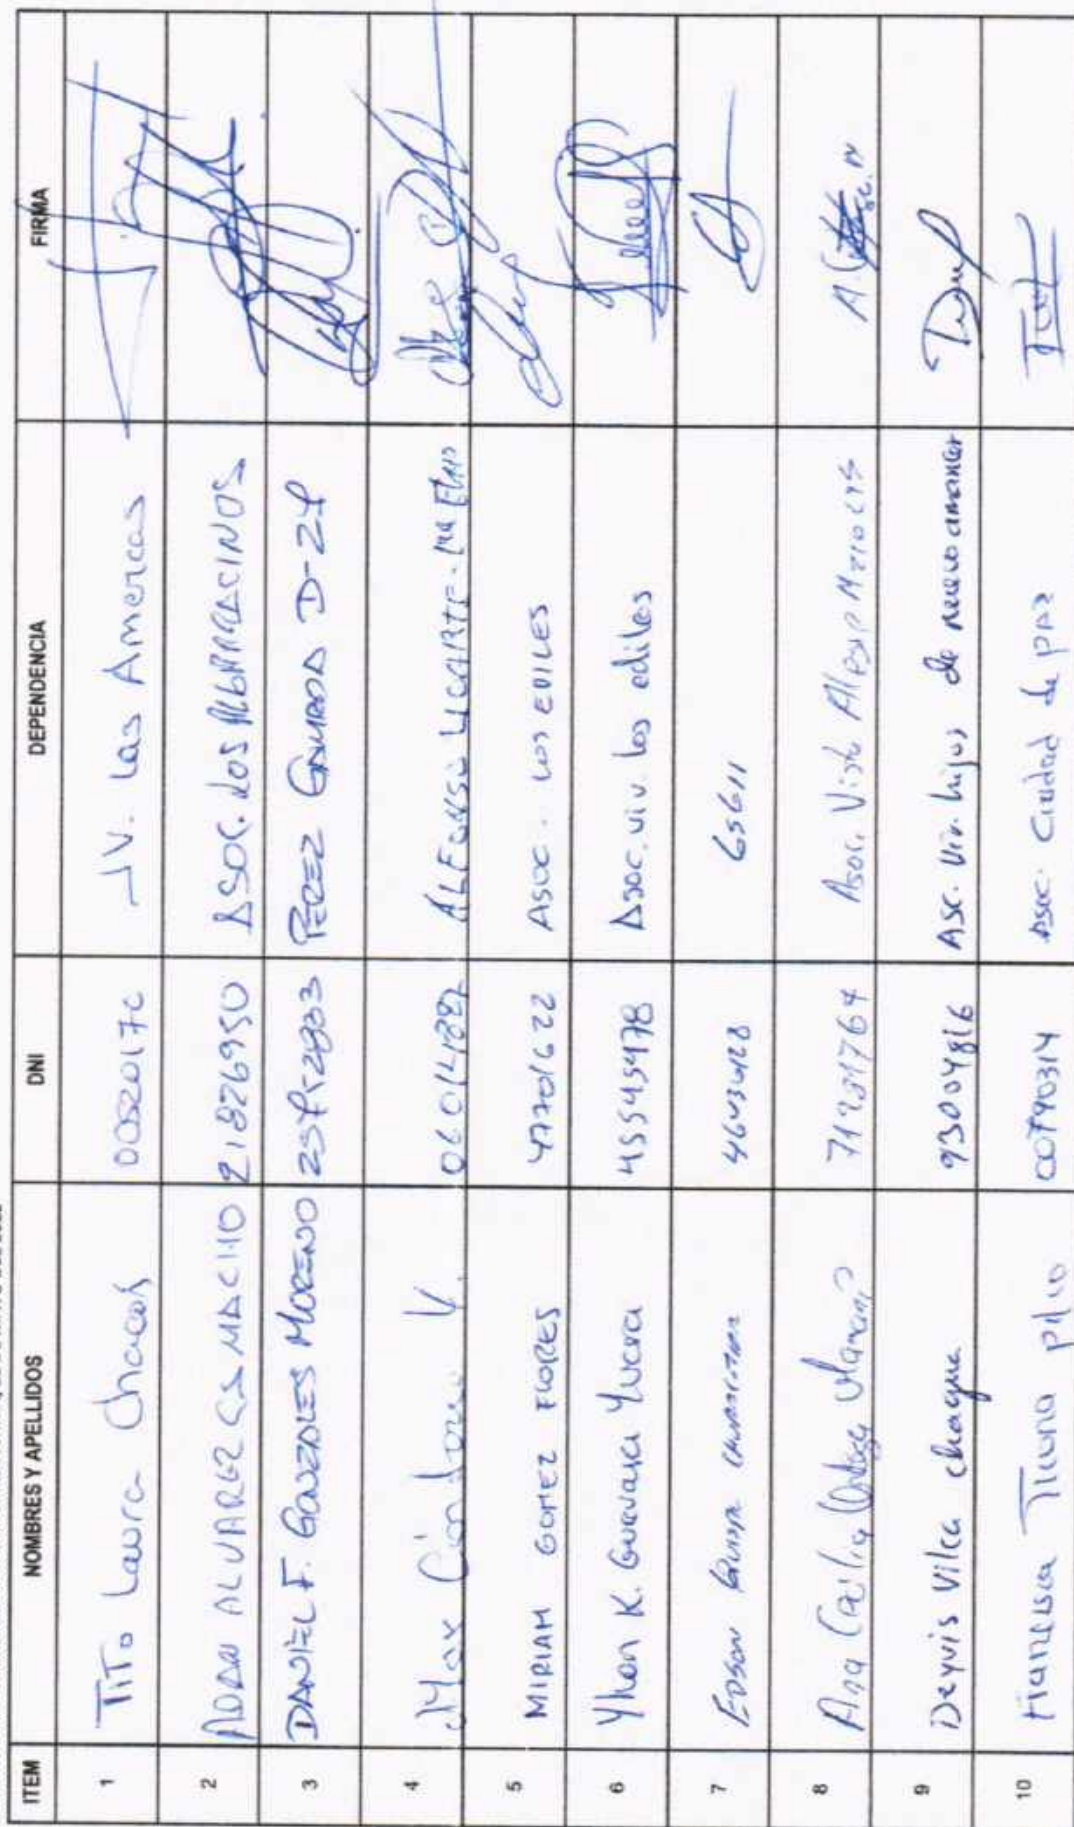 ITEM NOMBRES Y APELLIDOS DNI DEPENDENCIA FIRMA
1 TiTo Laura Chacas 0052017c JV. Las Americas
2 ADAN ALVAREZ CAMACHO 21826950 ASOC. LOS ALBARRACINOS
3 DANIEL F. GONZALES MORENO PEREZ GAMBOA D-24
4 Max V. ALFONSO UGARTE
5 MIRIAM GOMEZ FLORES 47701622 ASOC. LOS EDILES
6 Yhon K. Guevara Yucra 45545978 Asoc. viv. los ediles
7 EDSON 46436128 65611
8 Ana Cecilia Ortega Mamani 71981764 Asoc. Vista Alegre
9 Deyvis Vilca chaqua 93004816 Asc. Viv. hijos de nuevo amanecer
10 Ticona pilco 00790314 Asoc. Ciudad de paz